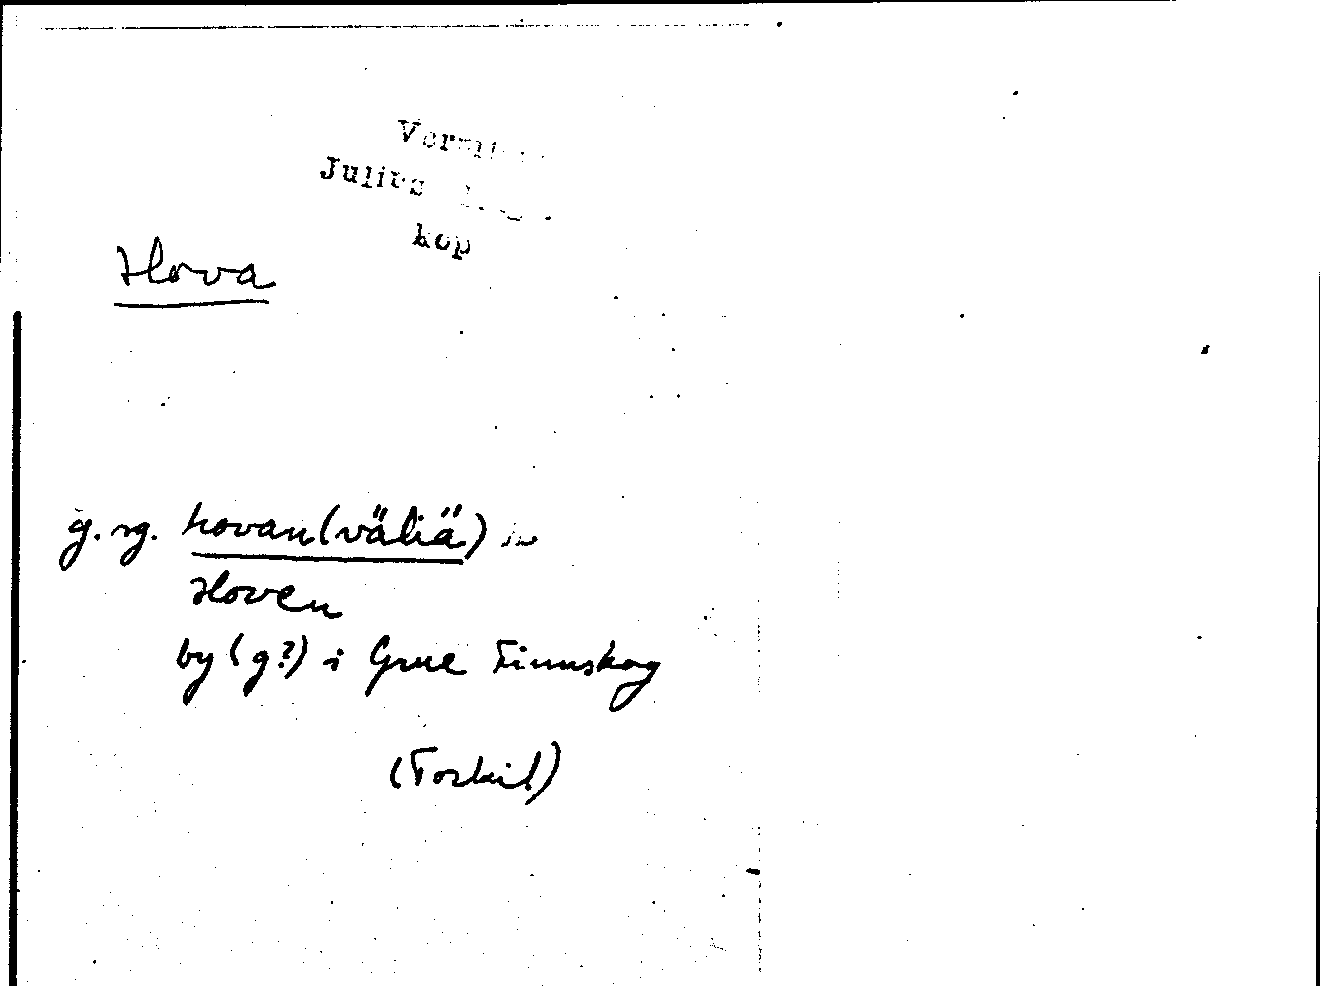 Julius
kop
Hova
g. sg. hovan (väliä)
Hoven
by (g?) i Grue Finnskog
(Torkil)